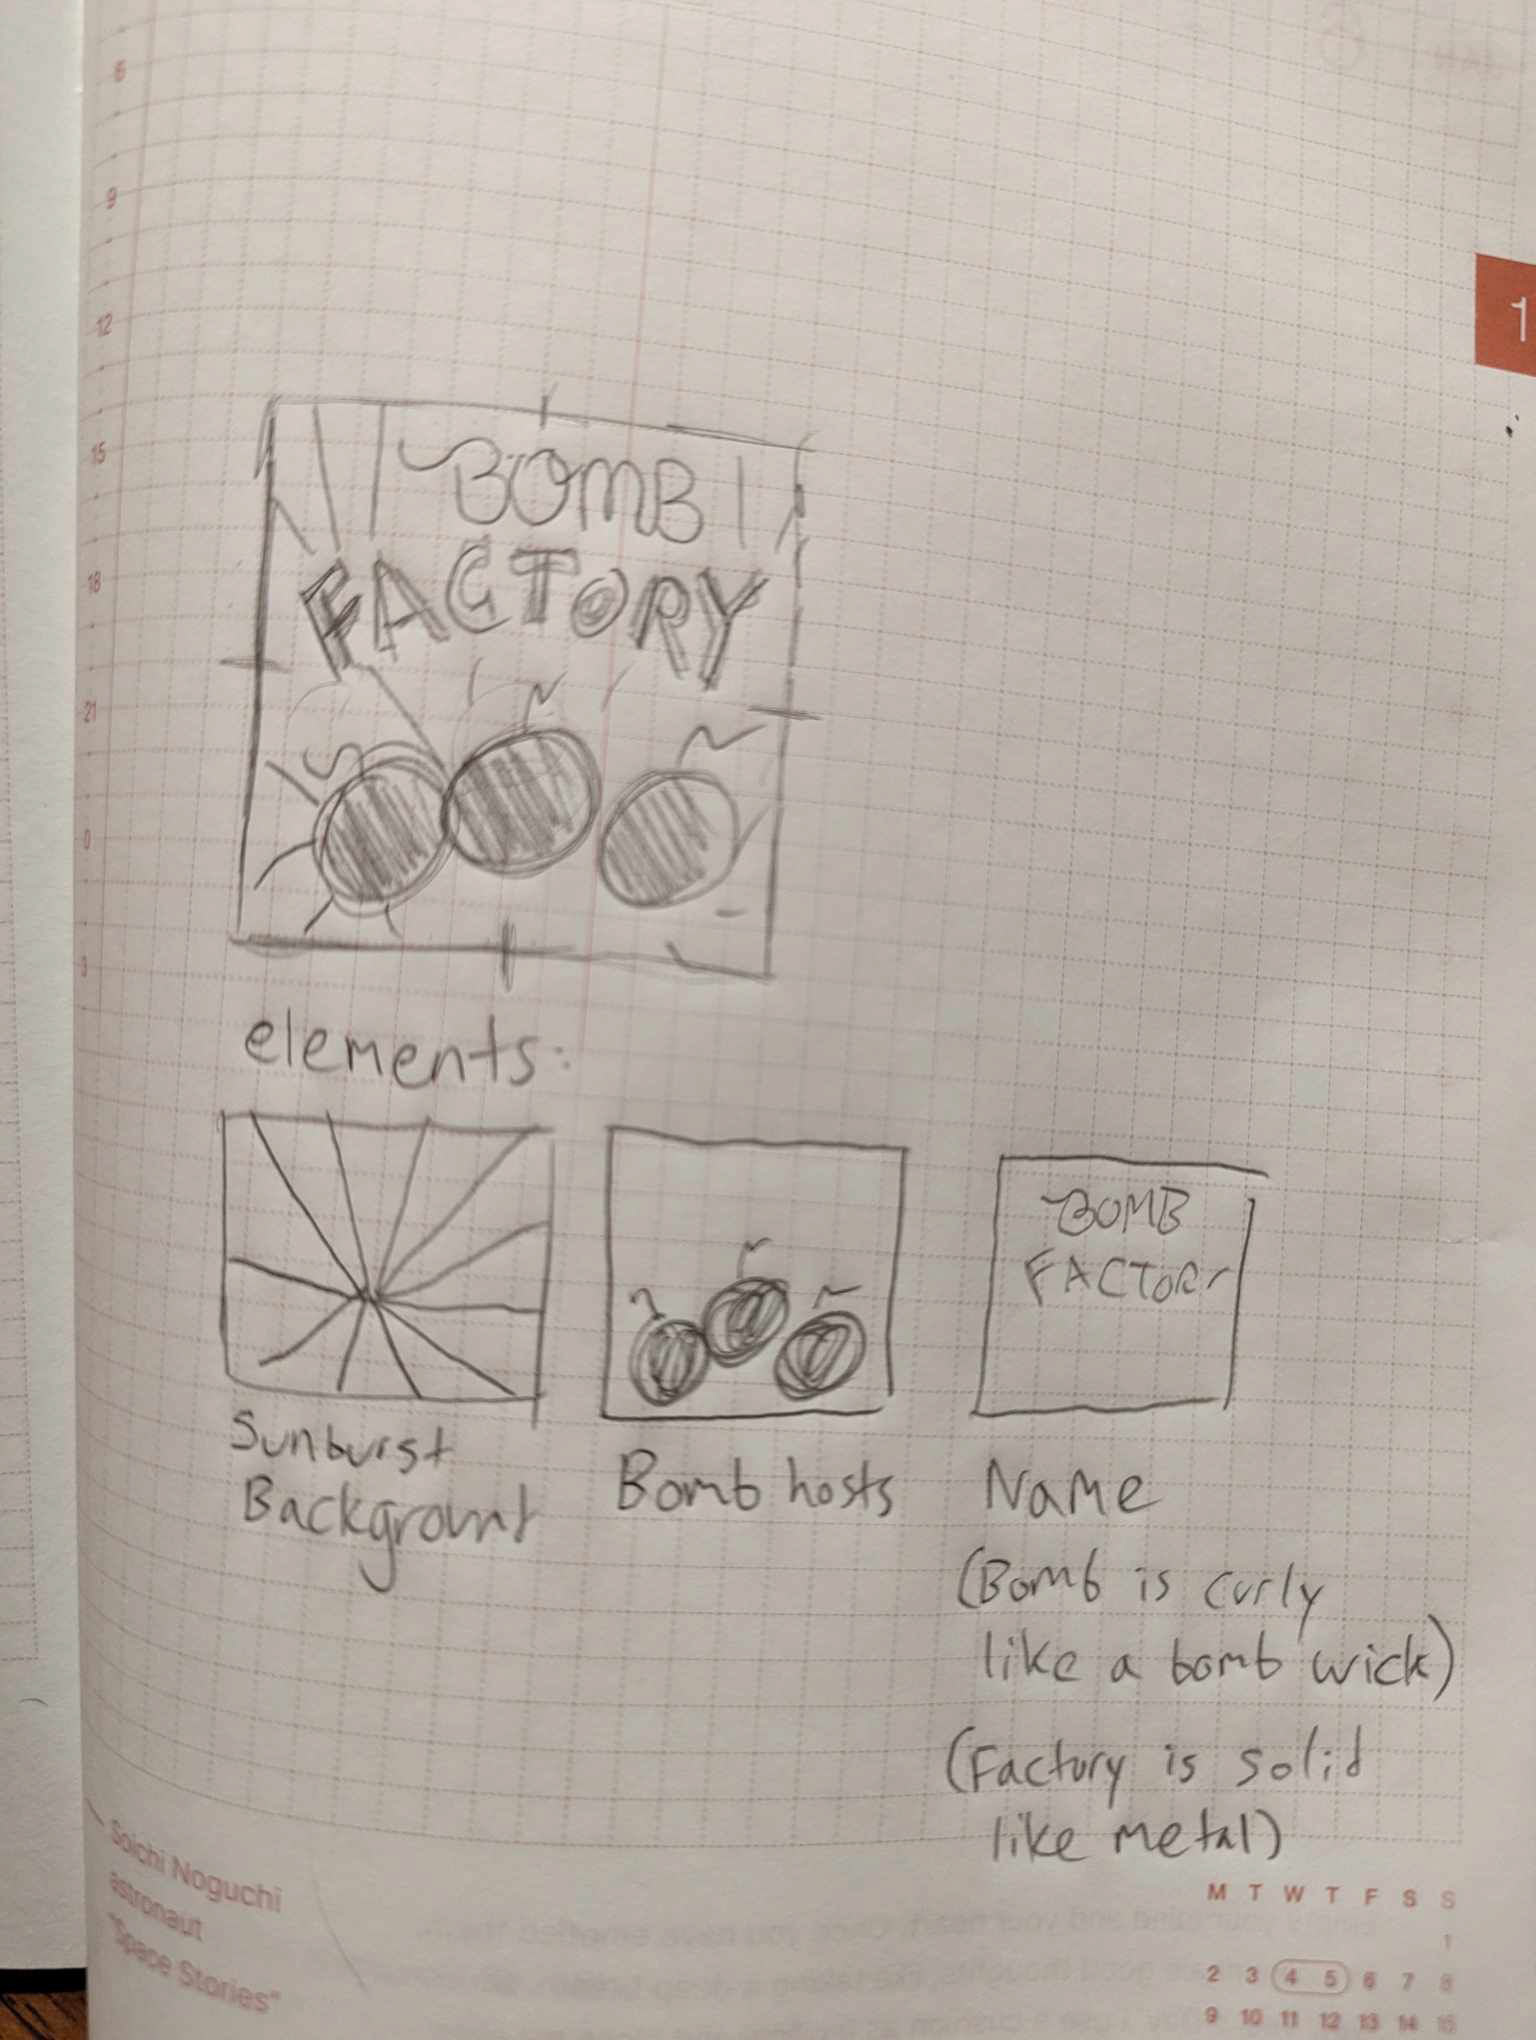 6
9
12
1
15
18
21
0
3
BOMB
FACTORY
elements:
Sunburst
Background
Bomb hosts
BOMB
FACTORY
Name
(Bomb is curly
like a bomb wick)
(Factory is solid
like metal)
Soichi Noguchi
astronaut
"Space Stories"
M T W T F S S
1
2 3 4 5 6 7 8
9 10 11 12 13 14 15